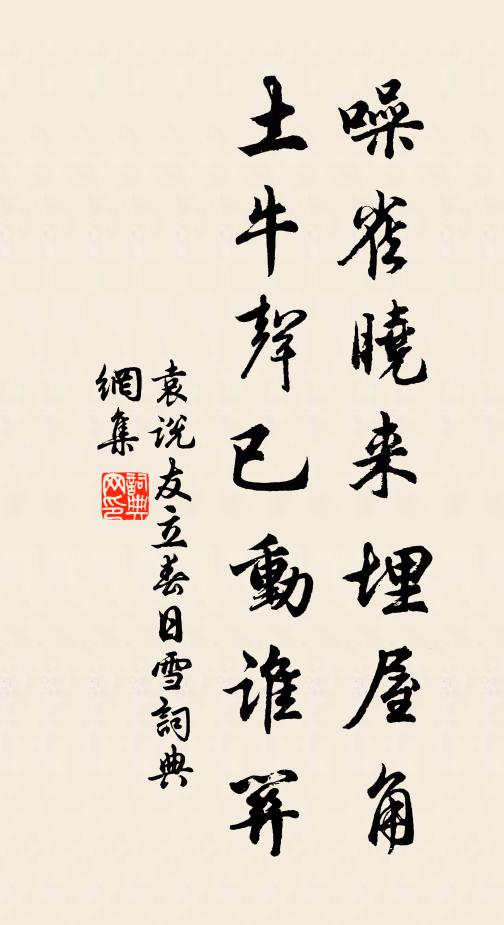 噪雀曉来埋屋角
土牛聲已動譙門
袁说友立春日雪詞典
網集
詞典网印